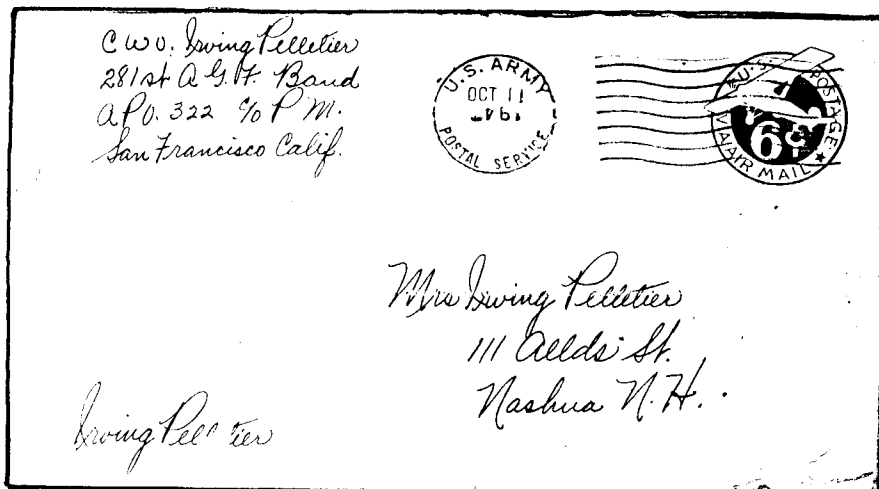 C W O. Irving Pelletier
281st A.G.F. Band
A P O. 322 c/o P M.
San Francisco Calif.
U.S. ARMY
OCT 11
POSTAL SERVICE
U.S. POSTAGE
6¢
VIA AIR MAIL
Mrs Irving Pelletier
111 Allds St.
Nashua N.H.
Irving Pelletier